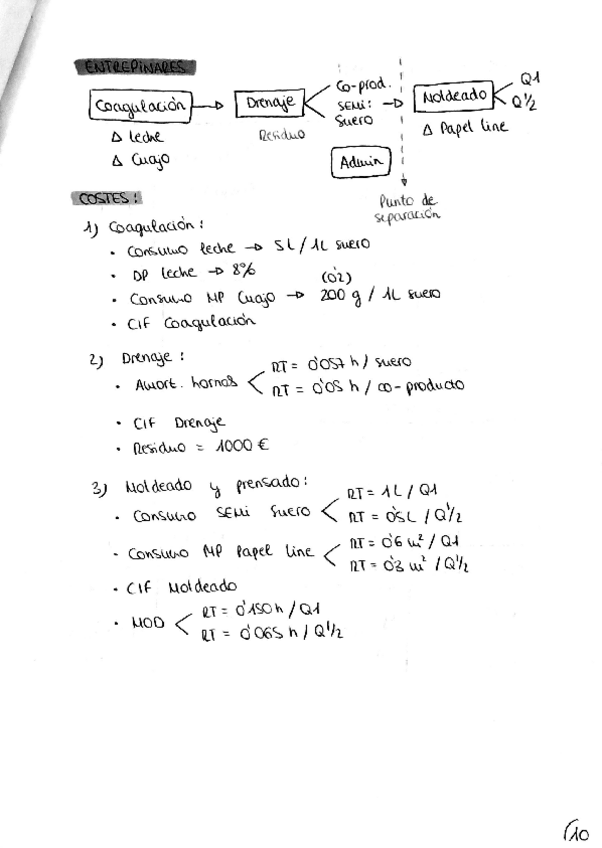 ENTREPINARES
Coagulación → Drenaje < Co-prod. → Moldeado < Q1
SEMI: Suero
Q1/2
Δ leche
Δ Cuajo
Residuo
Δ Papel line
Admin
Punto de separación
COSTES:
1) Coagulación:
· Consumo leche → 5L / 1L suero
· DP leche → 8%
(0'2)
· Consumo MP Cuajo → 200 g / 1L suero
· CIF Coagulación
2) Drenaje:
· Amort. hornos < RT = 0'057 h / suero
RT = 0'05 h / co-producto
· CIF Drenaje
· Residuo = 1000 €
3) Moldeado y prensado:
· Consumo SEMI Suero < RT = 1L / Q1
RT = 0'5L / Q1/2
· Consumo MP Papel line < RT = 0'6 m² / Q1
RT = 0'3 m² / Q1/2
· CIF Moldeado
· MOD < RT = 0'150 h / Q1
RT = 0'065 h / Q1/2
10